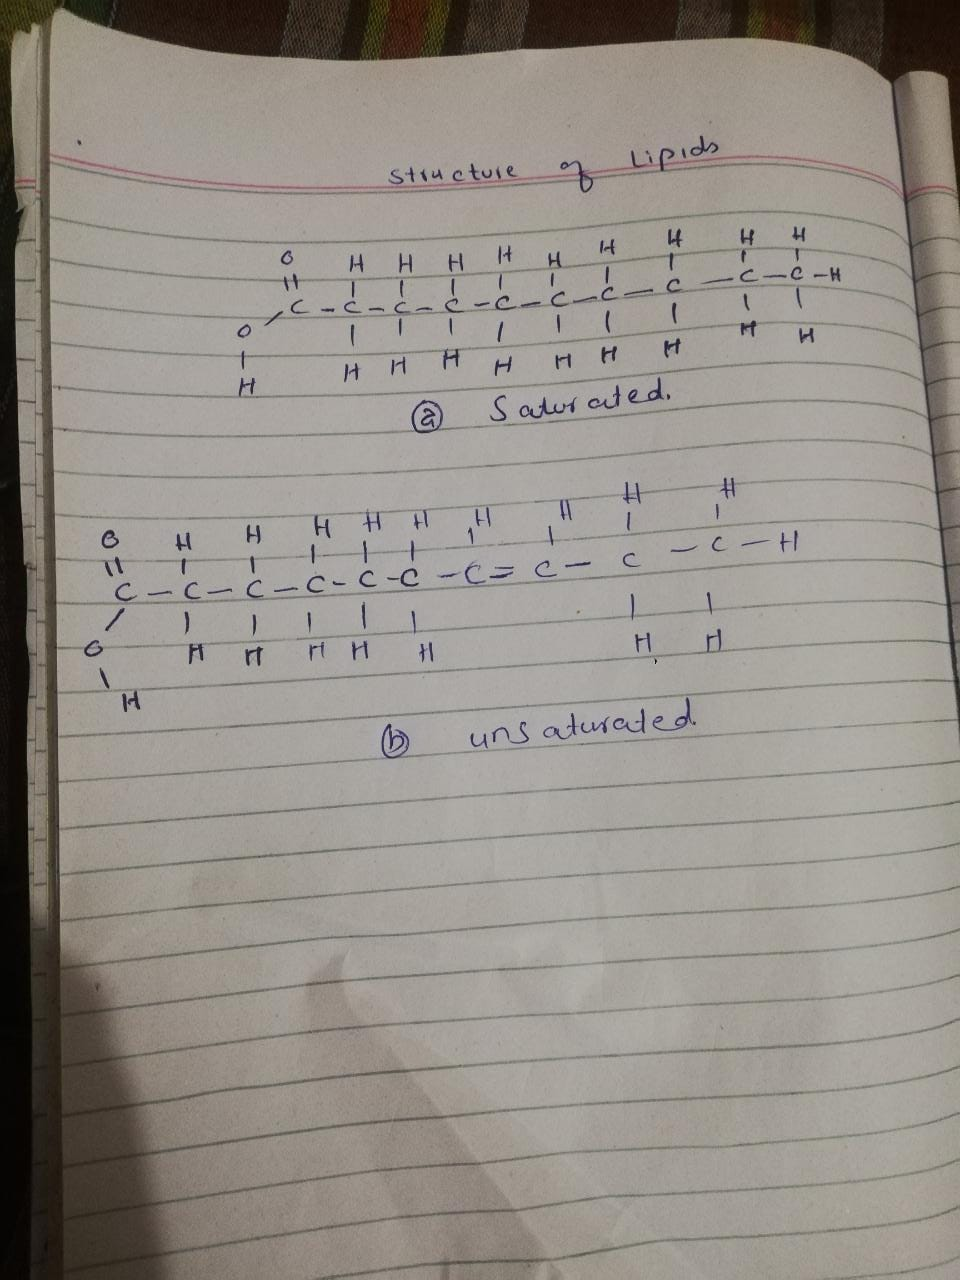 Structure of Lipids
O H H H H H H H H H
|| | | | | | | | | |
C - C - C - C - C - C - C - C - C - C - H
O / | | | | | | | | |
| H H H H H H H H H
H
(a) Saturated.
O H H H H H H H H H
|| | | | | | | | | |
C - C - C - C - C - C - C = C - C - C - H
/ | | | | | | |
O H H H H H H H
\
H
(b) unsaturated.